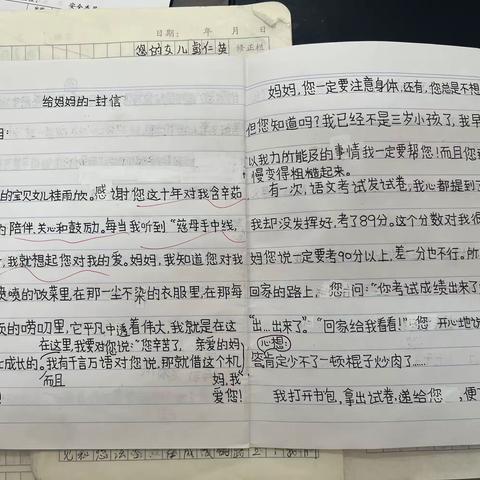 日期： 年 月 日
您的女儿彭仁英
修正栏
给妈妈的一封信
的宝贝女儿桂雨欣。感谢您这十年对我含辛茹
陪伴、关心和鼓励。每当我听到“慈母手中线，
，我就想起您对我的爱。妈妈，我知道您对我
喷的饭菜里，在那一尘不染的衣服里，在那每
的唠叨里，它平凡中透着伟大，我就是在这
在这里，我要对您说：“您辛苦了，亲爱的妈
成长的。我有千言万语对您说，那就借这个机
而且
妈，我“
爱您！
妈妈，您一定要注意身体，还有，您总是不想
但您知道吗？我已经不是三岁小孩了，我早
以我力所能及的事情我一定要帮您！而且您
慢变得粗糙起来。
有一次，语文考试发试卷，我心都提到了
我却没发挥好，考了89分。这个分数对我很
妈您说一定要考90分以上，差一分也不行。所
回家的路上，您问：“你考试成绩出来了
“出…出来了。”“回家给我看看！”您开心地说
心想：
肯定少不了一顿棍子炒肉了……
我打开书包，拿出试卷，递给您，便